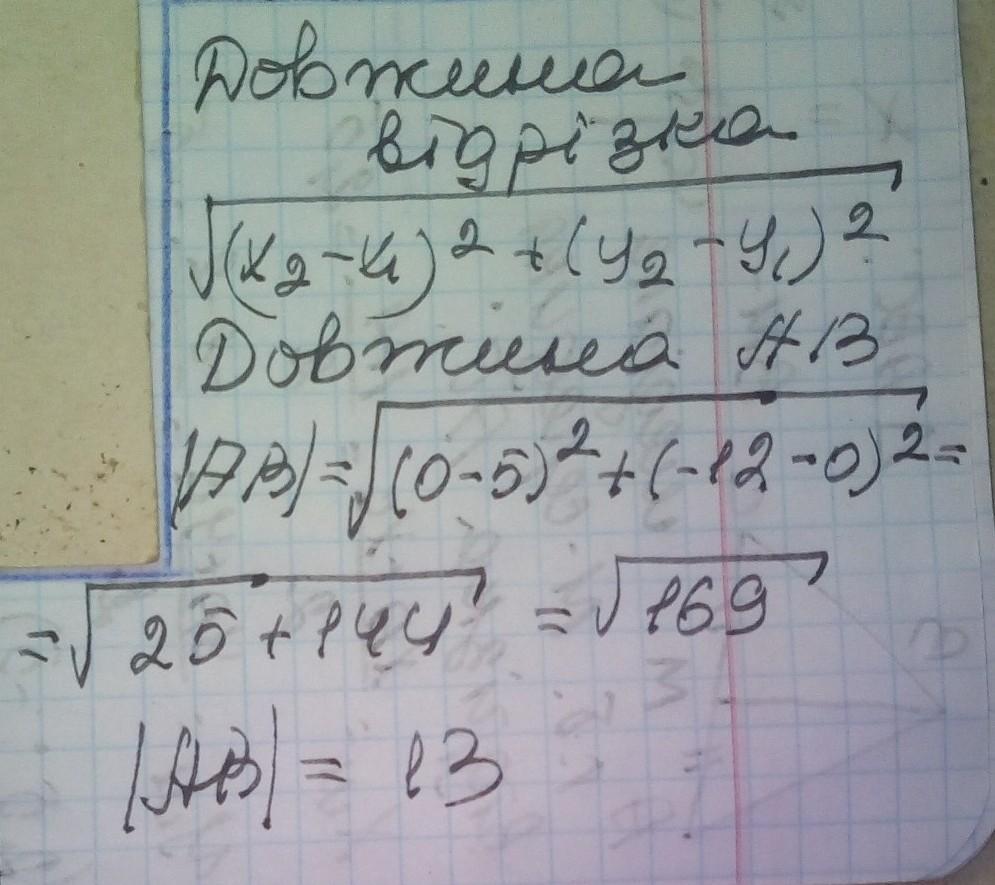 Довжина
відрізка
√(x₂-x₁)² + (y₂-y₁)²
Довжина AB
|AB| = √(0-5)² + (-12-0)² =
= √25 + 144 = √169
|AB| = 13